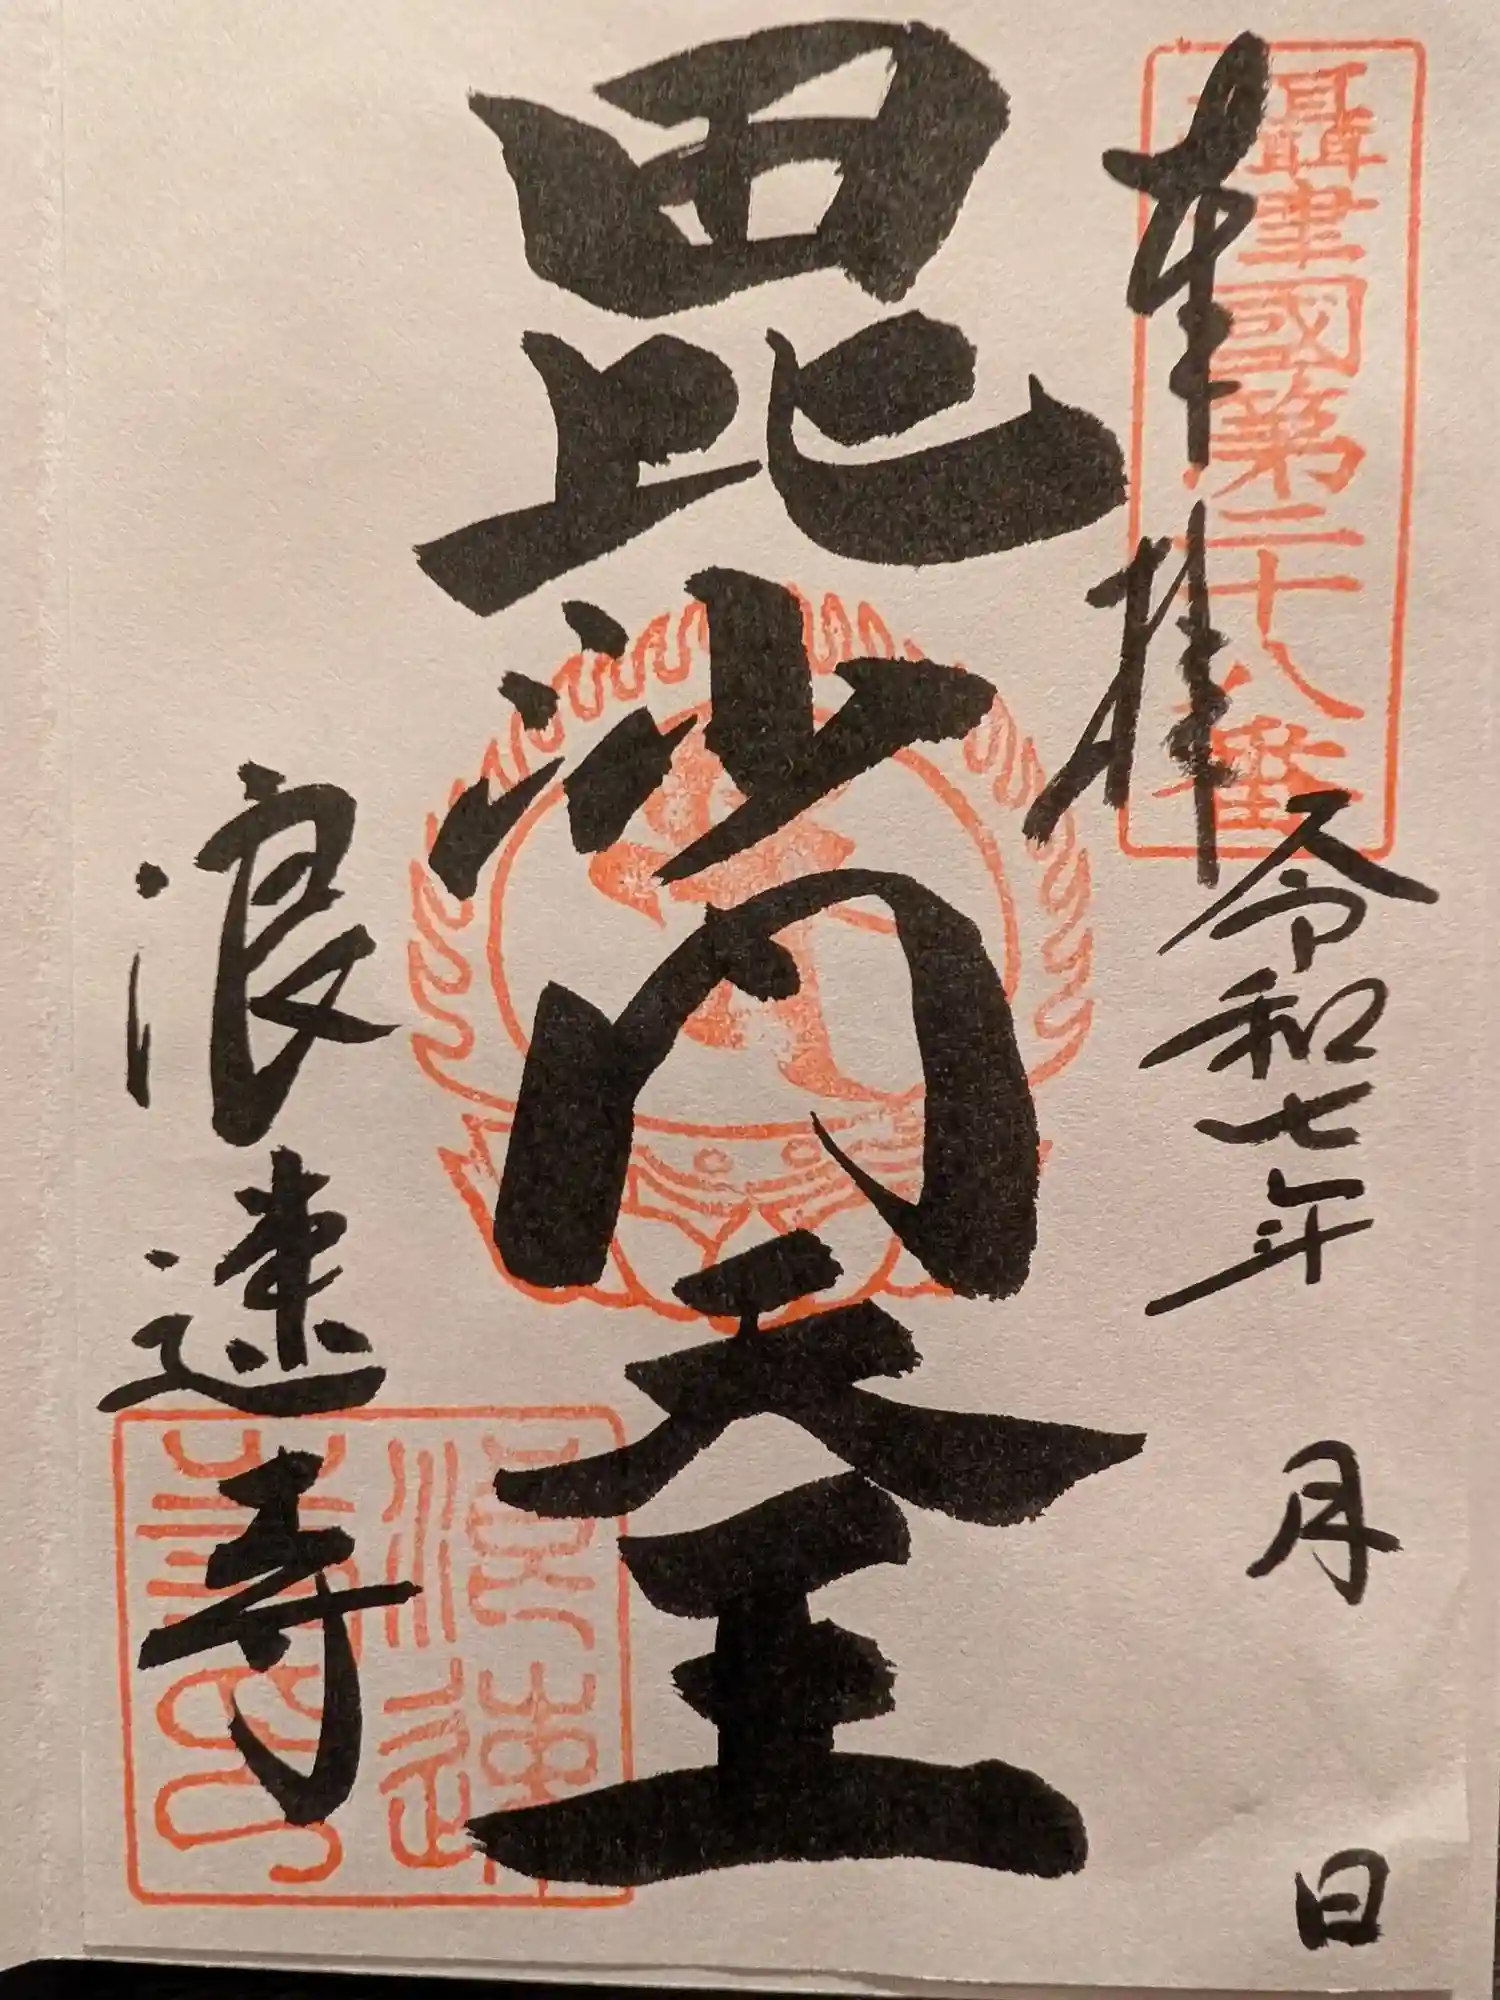 攝津國第三十八番
奉拝
令和七年 月 日
毘沙門天王
浪速寺